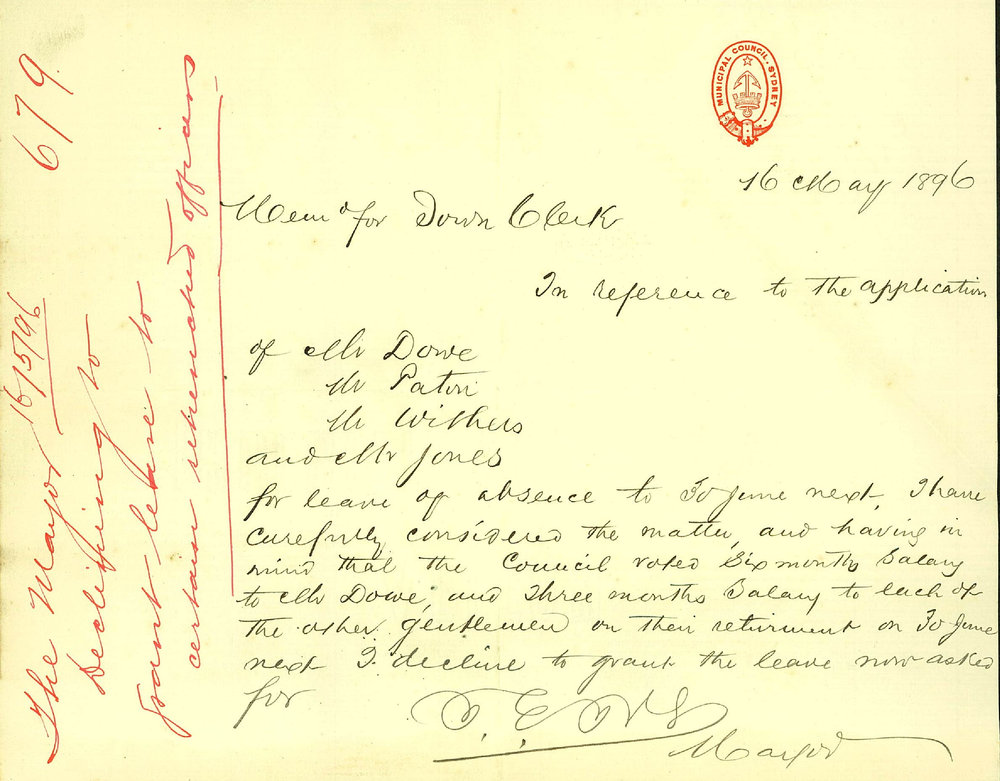 MUNICIPAL COUNCIL, SYDNEY
16 May 1896
Memo for Town Clerk
In reference to the application
of Mr Dowe
Mr Paton
Mr Withers
and Mr Jones
for leave of absence to 30 June next, I have
carefully considered the matter, and having in
mind that the Council voted Six months Salary
to Mr Dowe, and Three months Salary to each of
the other gentlemen on their retirment on 30 June
next I decline to grant the leave now asked
for
Mayor
679
The Mayor 16/5/96
Declining to
grant leave to
certain retrenched officers